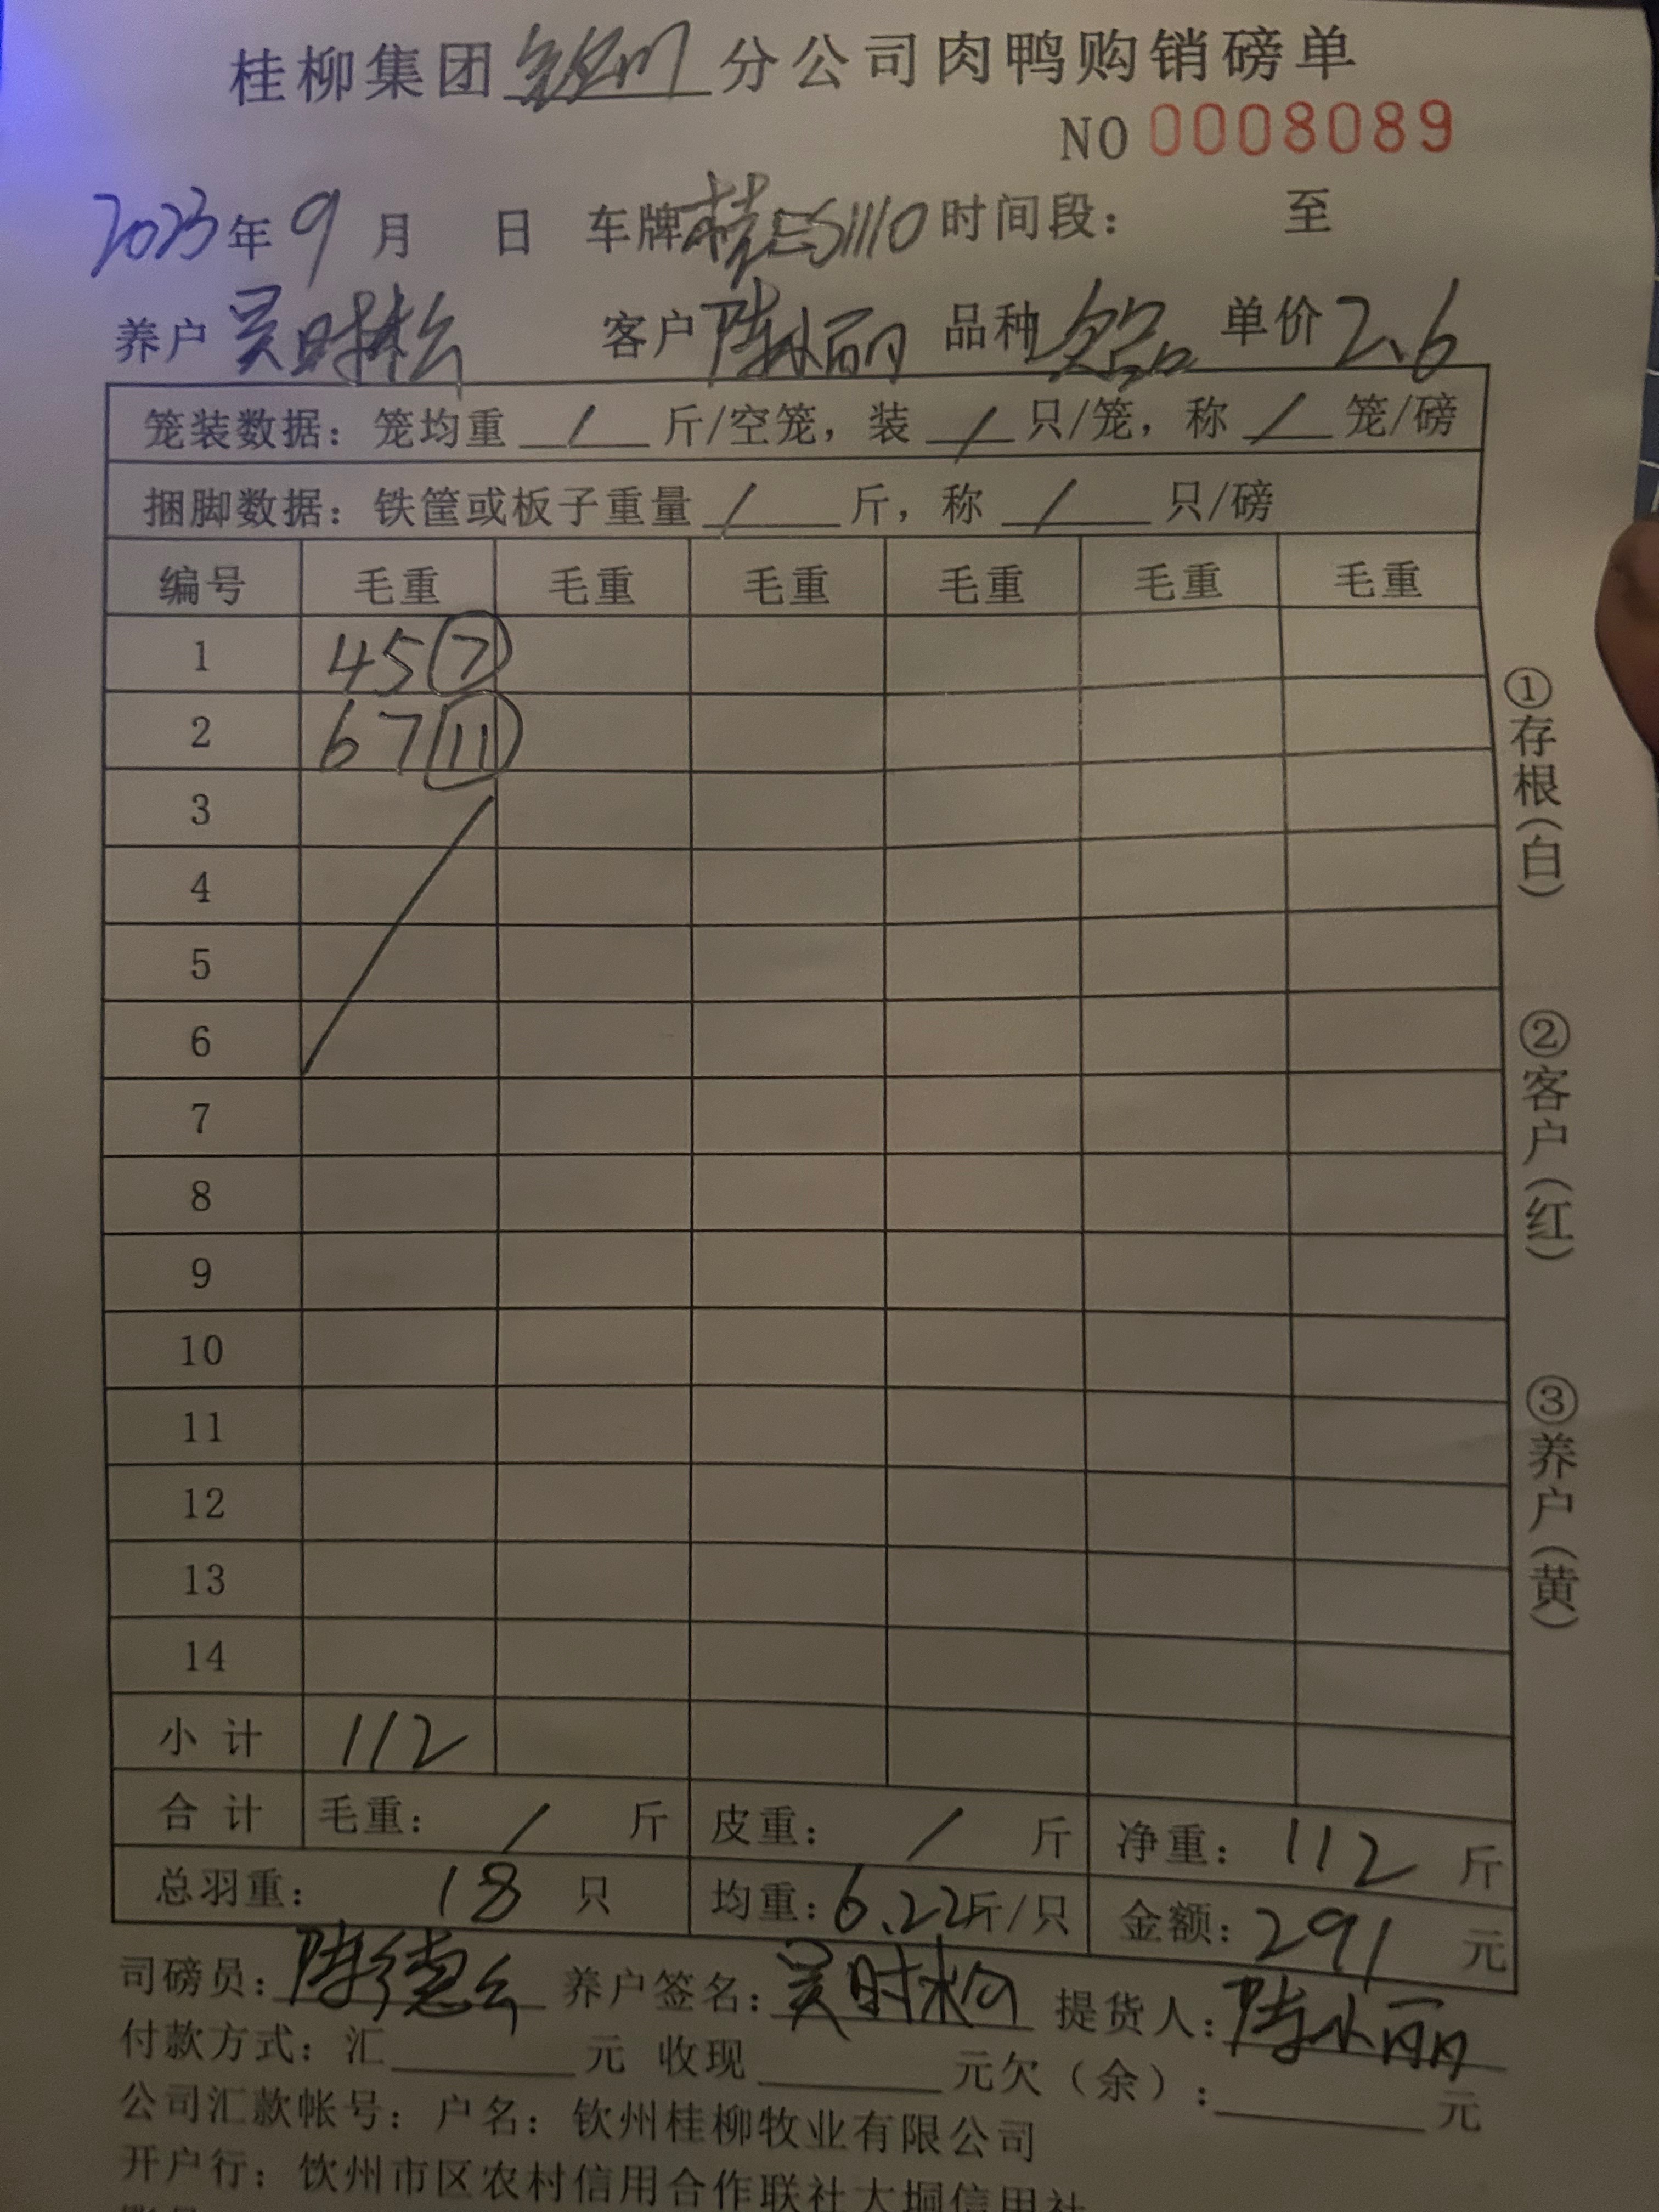 桂柳集团钦州分公司肉鸭购销磅单
NO 0008089
2023年9月 日 车牌桂ES1110时间段： 至
养户 吴时松 客户 陈小丽 品种 单价2.6
笼装数据：笼均重 / 斤/空笼，装 / 只/笼，称 / 笼/磅
捆脚数据：铁筐或板子重量 / 斤，称 / 只/磅
编号 毛重 毛重 毛重 毛重 毛重 毛重
1 45 ⑦
2 67 ⑪
3
4
5
6
7
8
9
10
11
12
13
14
小 计 112
合 计 毛重： / 斤 皮重： / 斤 净重： 112 斤
总羽重： 18 只 均重：6.22斤/只 金额：291 元
司磅员： 养户签名：吴时松 提货人：陈小丽
付款方式：汇 元 收现 元欠（余）： 元
公司汇款帐号：户名：钦州桂柳牧业有限公司
开户行：钦州市区农村信用合作联社大垌信用社
①存根（白）
②客户（红）
③养户（黄）